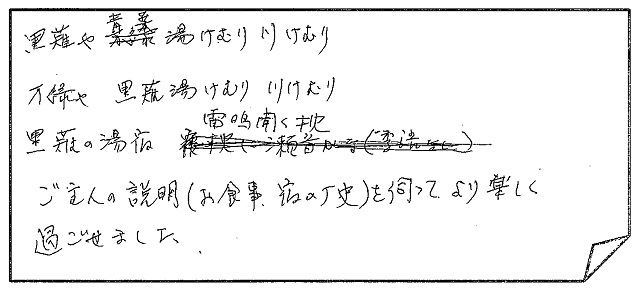 黒薙や 青葉 湯けむり 川けむり
万緑や 黒薙湯けむり 川けむり
雷鳴聞く枕
黒薙の湯宿 寝枕に瀬音かな(季語なし)
ご主人の説明(お食事、宿の歴史)を伺って より楽しく
過ごせました。